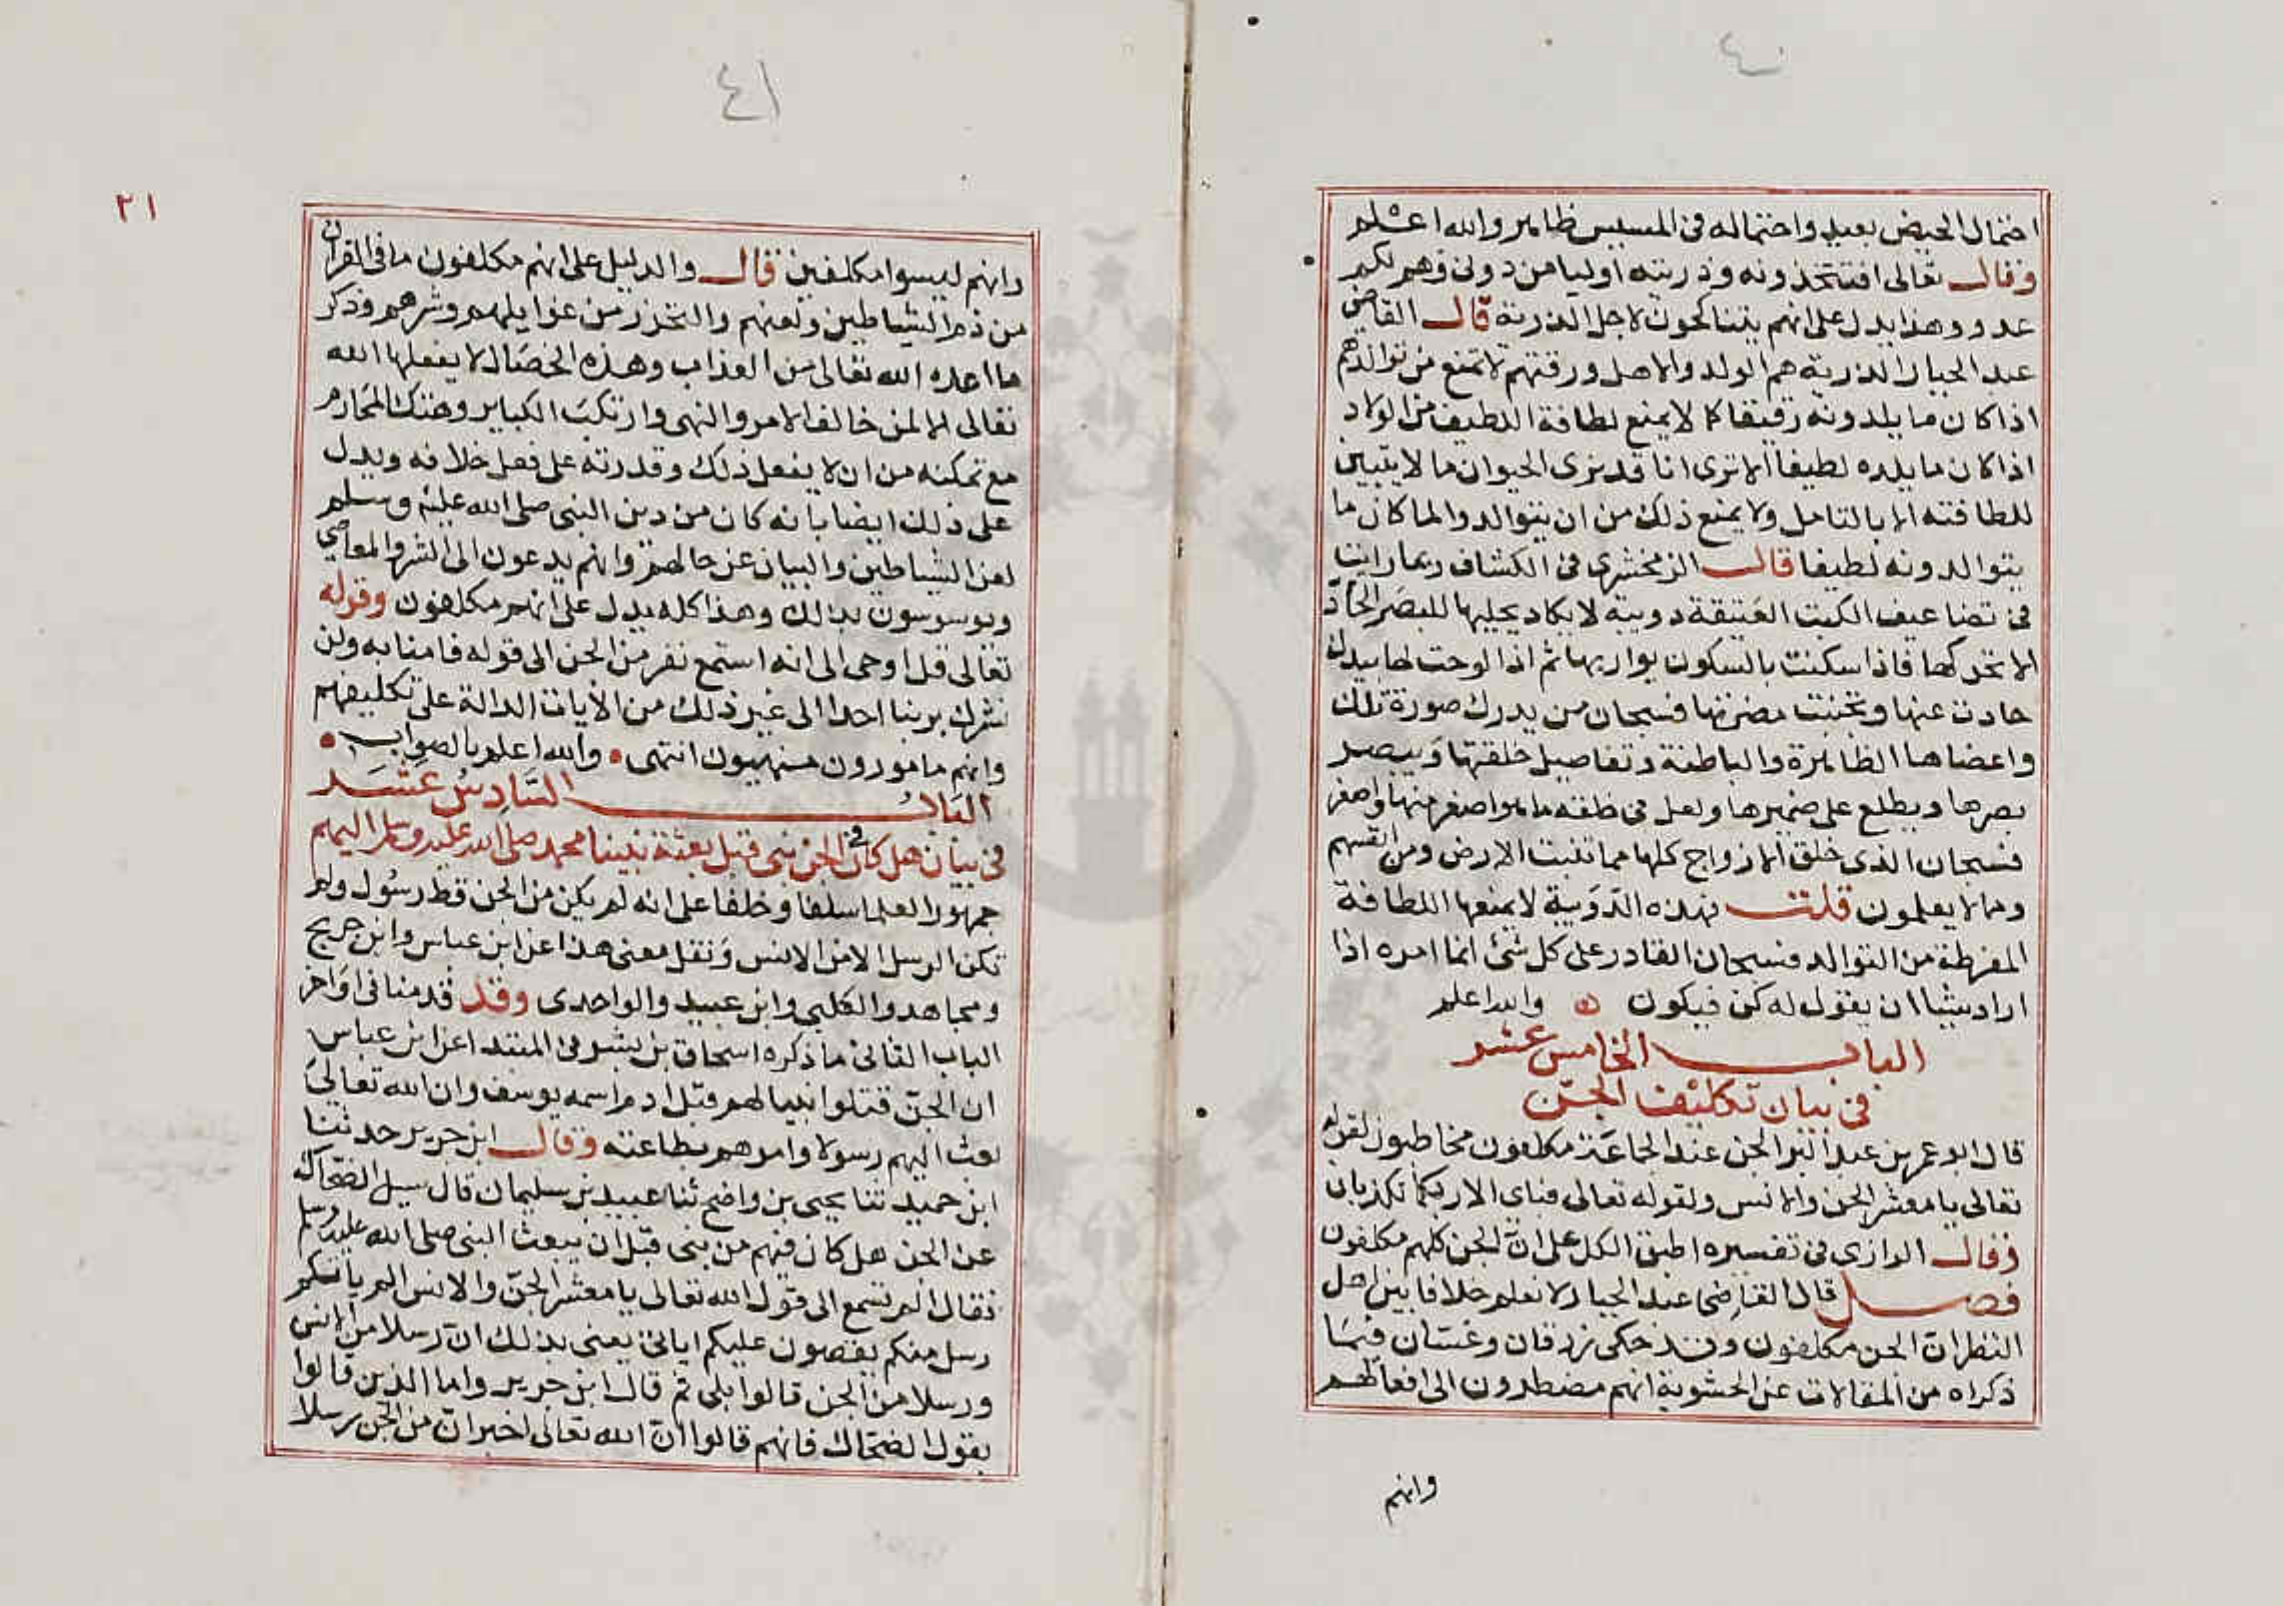 ٤٠
احتمال الحيض بعيد واحتماله في المسيس ظاهر والله اعلم
وقال تعالى افتتخذونه وذريته اوليا من دوني وهم لكم
عدو وهذا يدل على انهم يتناكحون لاجل الذرية قال القاضي
عبد الجبار الذرية هم الولد والاهل ورقتهم لا تمنع من توالدهم
اذا كان ما يلدونه رقيقا كما لا يمنع لطافة اللطيف من الولاد
اذا كان ما يلده لطيفا الا ترى انا قد نرى الحيوان ما لا يتبين
للطافته الا بالتامل ولا يمنع ذلك من ان يتوالدوا لما كان ما
يتوالدونه لطيفا قال الزمخشري في الكشاف ربما راينا
في تضاعيف الكتب العتيقة دويبة لا يكاد يجليها للبصر الحاد
الا تحركها فاذا سكنت بالسكون يواريها ثم اذا لوحت لها بيدك
حادت عنها وتجنبت مضرتها فسبحان من يدرك صورة تلك
واعضاها الظاهرة والباطنة وتفاصيل خلقتها ويبصر
بصرها ويطلع على ضميرها ولعل في خلقه ما هو اصغر منها واصغر
فسبحان الذي خلق الازواج كلها مما تنبت الارض ومن انفسهم
ومما لا يعلمون قلت فهذه الدويبة لا يمنعها اللطافة
المفرطة من التوالد فسبحان القادر على كل شئ انما امره اذا
اراد شيا ان يقول له كن فيكون ه والله اعلم
الباب الخامس عشر
في بيان تكليف الجن
قال ابو عمر بن عبد البر الجن عند الجماعة مكلفون مخاطبون لقوله
تعالى يا معشر الجن والانس ولقوله تعالى فباي الا ربكما تكذبان
وقال الرازي في تفسيره اطبق الكل على ان الجن كلهم مكلفون
فصل قال القاضي عبد الجبار لا نعلم خلافا بين اهل
النظر ان الجن مكلفون وقد حكى زرقان وغسان فيما
ذكراه من المقالات عن الحشوية انهم مضطرون الى افعالهم
وانهم
٤١
٢١
وانهم ليسوا مكلفين قال والدليل على انهم مكلفون ما في القران
من ذم الشياطين ولعنهم والتحرز من غوايلهم وشرهم وذكر
ما اعده الله تعالى من العذاب وهذه الخصال لا يفعلها الله
تعالى الا لمن خالف الامر والنهي وارتكب الكباير وهتك المحارم
مع تمكنه من ان لا يفعل ذلك وقدرته على فعل خلافه ويدل
على ذلك ايضا بانه كان من دين النبي صلى الله عليه وسلم
لعن الشياطين والبيان عن حالهم وانهم يدعون الى الشر والمعاصي
ويوسوسون بذلك وهذا كله يدل على انهم مكلفون وقوله
تعالى قل اوحي الى انه استمع نفر من الجن الى قوله فامنا به ولن
نشرك بربنا احدا الى غير ذلك من الايات الدالة على تكليفهم
وانهم مامورون منهيون انتهى والله اعلم بالصواب
الباب السادس عشر
في بيان هل كان في الجن نبي قبل بعثة نبينا محمد صلى الله عليه وسلم اليهم
جمهور العلما سلفا وخلفا على انه لم يكن من الجن قط رسول ولم
تكن الرسل الا من الانس ونقل معنى هذا عن ابن عباس وابن جريج
ومجاهد والكلبي وابن عبيد والواحدي وقد قدمنا في اواخر
الباب الثاني ما ذكره اسحاق بن بشر في المبتدا عن ابن عباس
ان الجن قتلوا نبيا لهم قبل ادم اسمه يوسف وان الله تعالى
بعث اليهم رسولا وامرهم بطاعته وقال ابن جرير حدثنا
ابن حميد ثنا يحيى بن واضح ثنا عبيد بن سليمان قال سيل الضحاك
عن الجن هل كان فيهم من نبي قبل ان يبعث النبي صلى الله عليه وسلم
فقال الم تسمع الى قول الله تعالى يا معشر الجن والانس الم ياتكم
رسل منكم يقصون عليكم اياتي يعني بذلك ان رسلا من الانس
ورسلا من الجن قالوا بلى ثم قال ابن جرير واما الذين قالوا
بقول الضحاك فانهم قالوا ان الله تعالى اخبر ان من الجن رسلا